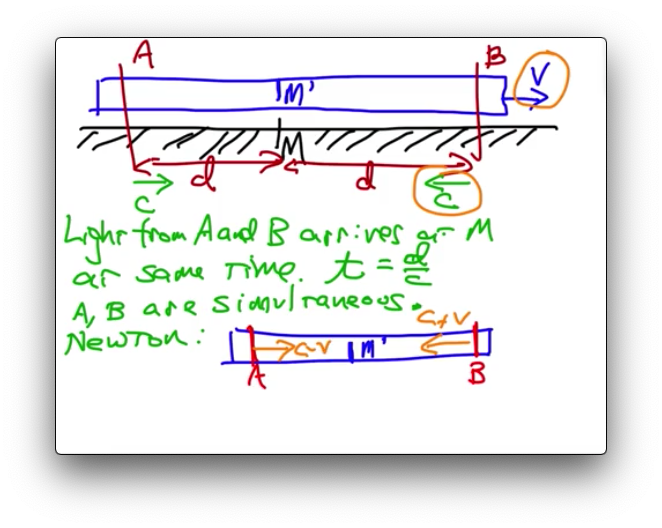 A
B
V
M'
M
d
d
c
c
Light from A and B arrives at M
at same time. t = d/c
A, B are simultaneous.
Newton:
c+v
c-v
M'
A
B